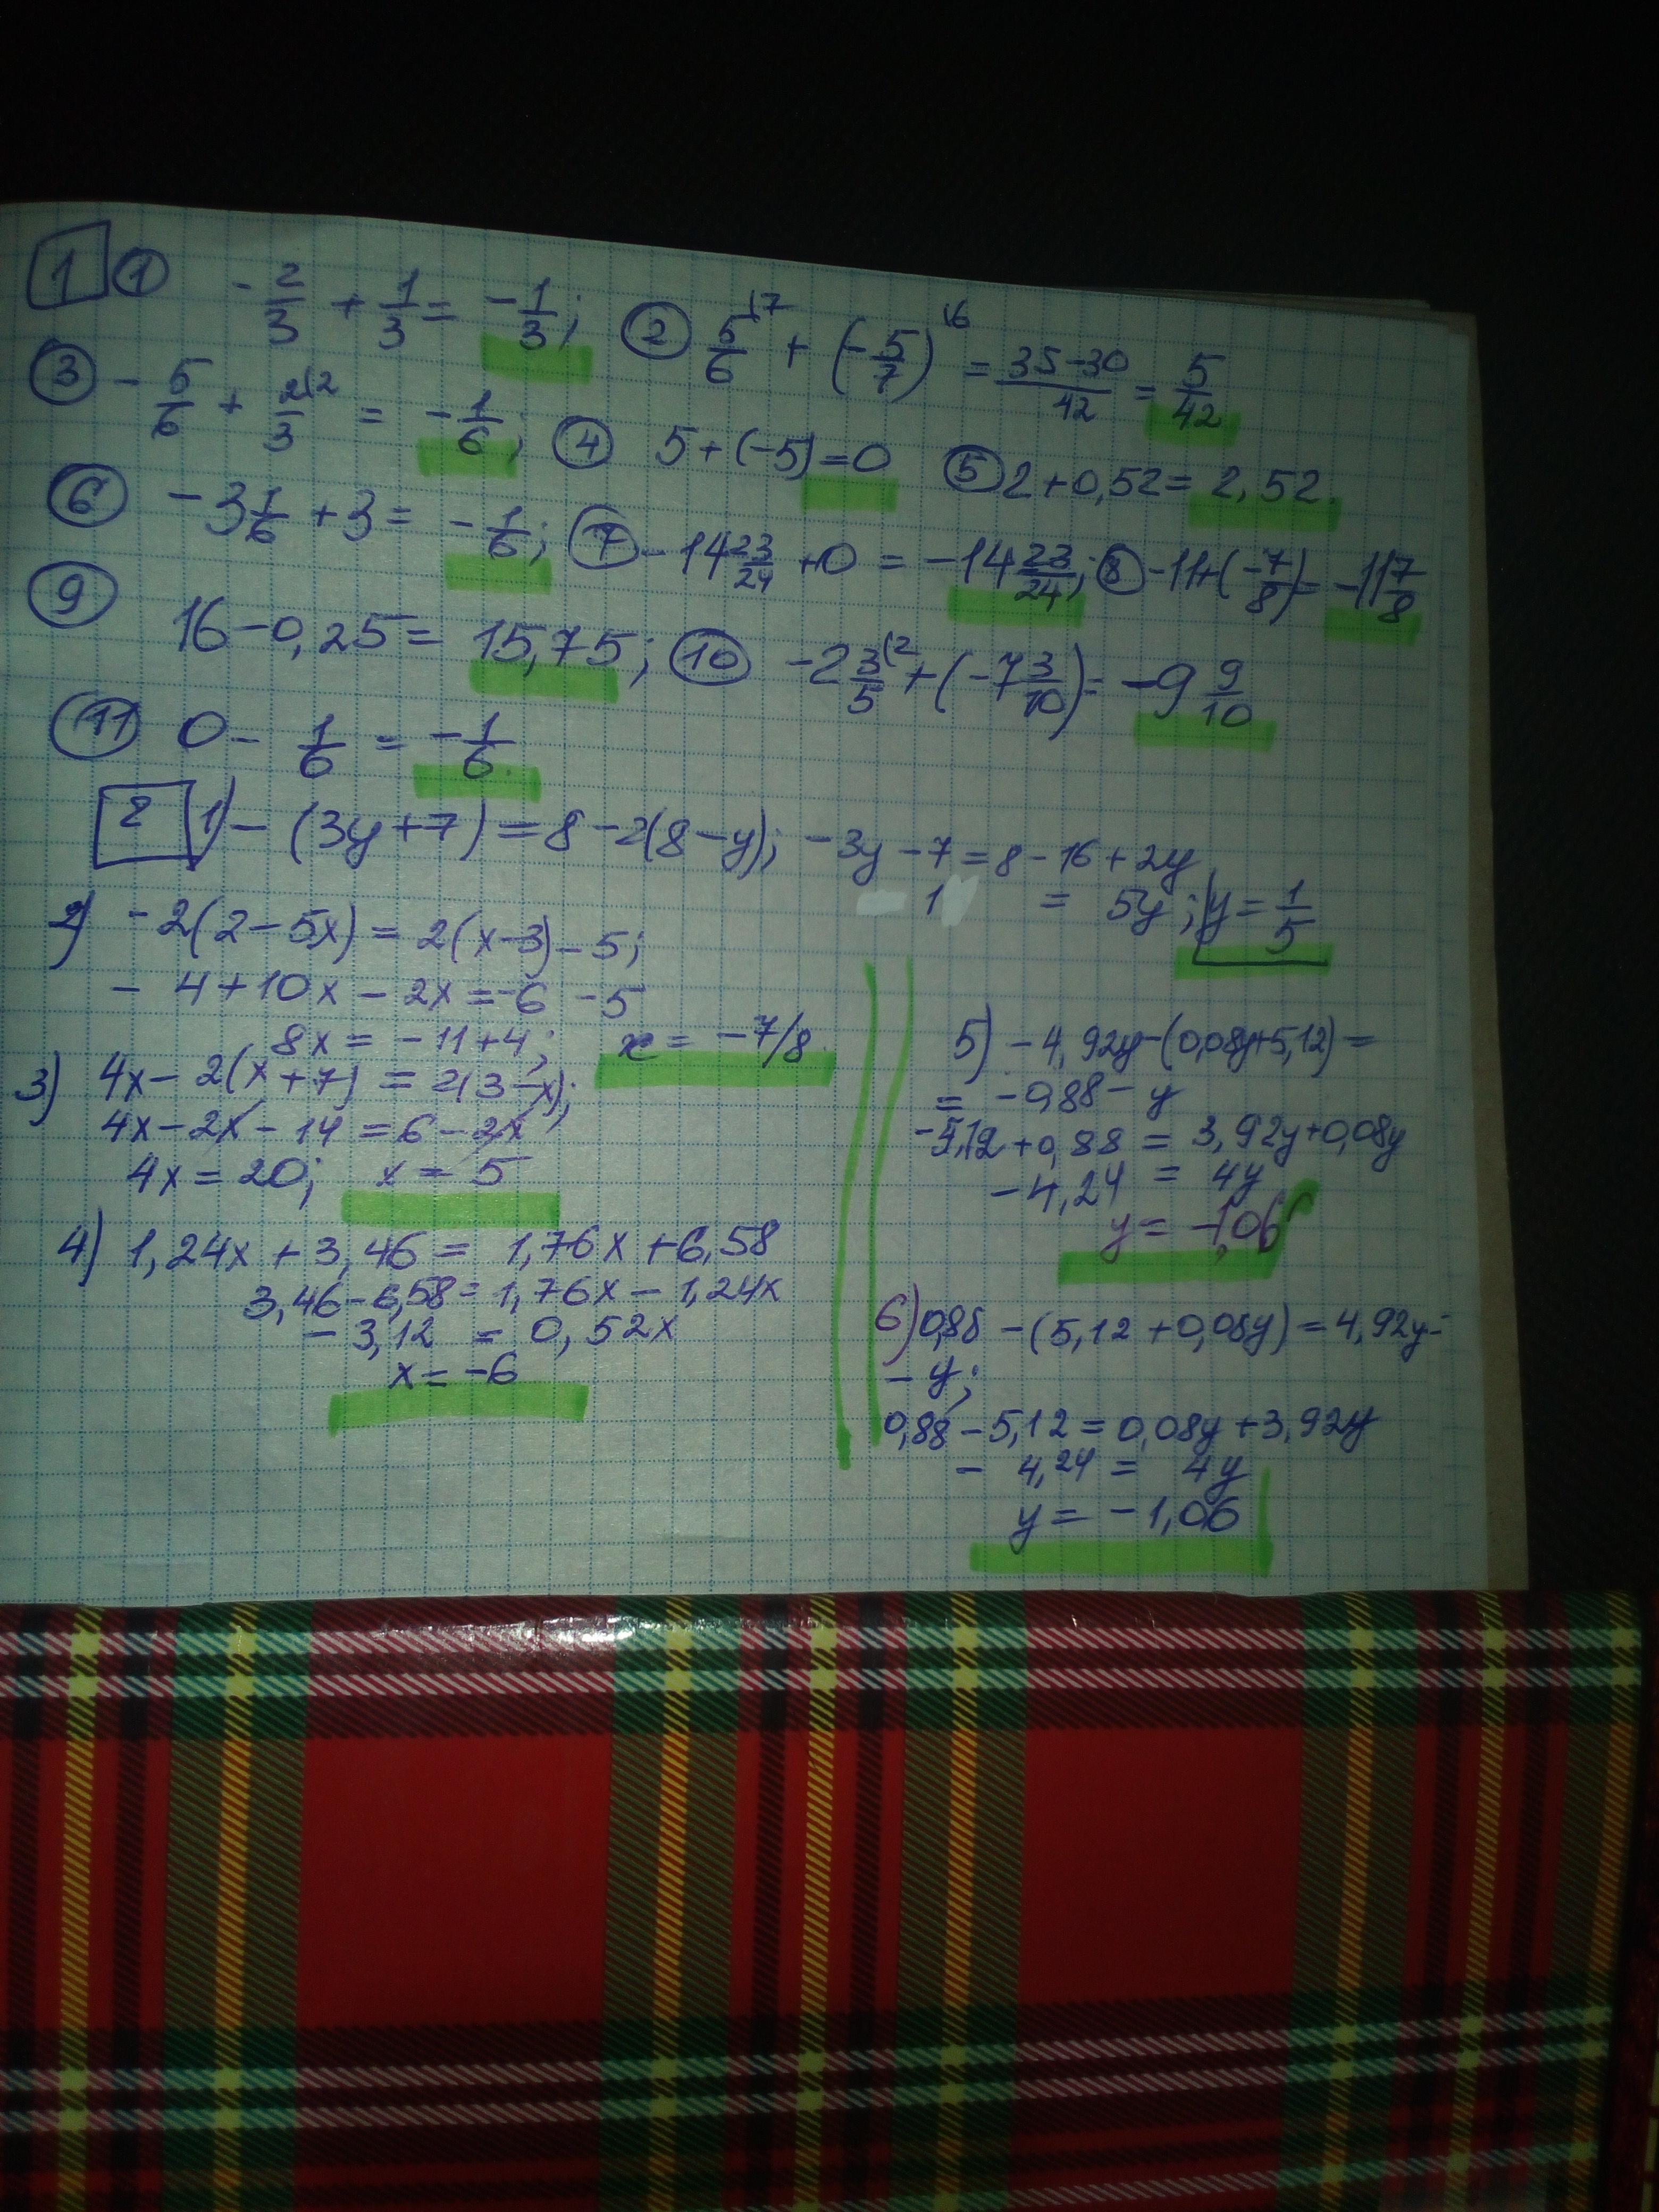 1 ① -2/3 + 1/3 = -1/3; ② 5/6 \7 + (-5/7) \6 = (35-30)/42 = 5/42
③ -5/6 + 2/3 \2 = -1/6; ④ 5+(-5)=0 ⑤ 2+0,52= 2,52.
⑥ -3 1/6 +3= -1/6; ⑦ -14 23/24 +0 = -14 23/24; ⑧ -11+(-7/8)= -11 7/8
⑨ 16-0,25= 15,75; ⑩ -2 3/5 (2 +(-7 3/10)= -9 9/10
⑪ 0- 1/6 = -1/6.
2 1) -(3y+7)=8-2(8-y); -3y-7=8-16+2y
1 = 5y; y=1/5
2) -2(2-5x)=2(x-3)-5;
-4+10x-2x=-6-5
8x=-11+4; x=-7/8.
3) 4x-2(x+7)=2(3-x);
4x-2x-14=6-2x
4x=20; x=5
4) 1,24x+3,46=1,76x+6,58
3,46-6,58=1,76x-1,24x
-3,12=0,52x
x=-6
5) -4,92y-(0,08y+5,12)=
= -0,88-y
-5,12+0,88=3,92y+0,08y
-4,24=4y
y=-1,06
6) 0,88-(5,12+0,08y)=4,92y-
-y;
0,88-5,12=0,08y+3,92y
-4,24=4y
y=-1,06